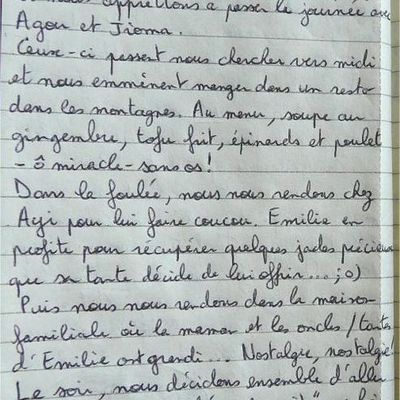 nous apprêtons à passer la journée avec
Agou et Jioma.
Ceux-ci passent nous chercher vers midi
et nous emmènent manger dans un resto
dans les montagnes. Au menu, soupe au
gingembre, tofu frit, épinards et poulet
- ô miracle - sans os!
Dans la foulée, nous nous rendons chez
Ayi pour lui faire coucou. Emilie en
profite pour récupérer quelques jades précieux
que sa tante décide de lui offrir... ;o)
Puis nous nous rendons dans la maison
familiale où la maman et les oncles / tantes
d'Emilie ont grandi... Nostalgie, nostalgie!
Le soir, nous décidons ensemble d'aller